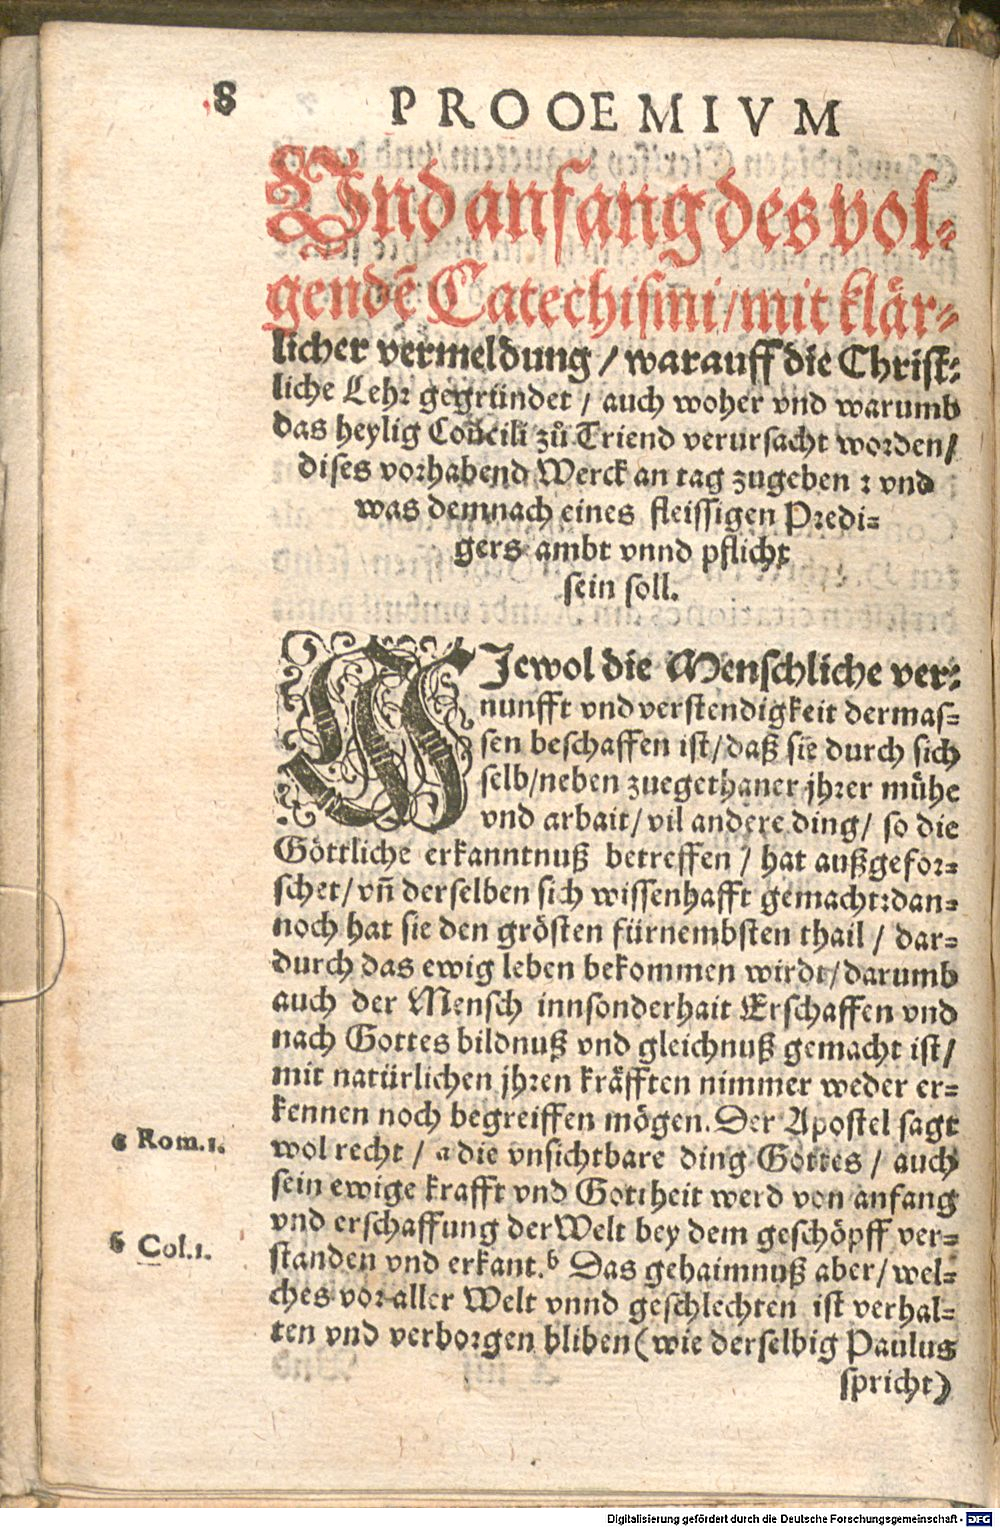 8 PROOEMIVM
Vnd anfang des vol-
gendē Catechismi / mit klär-
licher vermeldung / warauff die Christ-
liche Lehr gegründet / auch woher vnd warumb
das heylig Cōncili zů Triend verursacht worden /
dises vorhabend Werck an tag zugeben : vnd
was demnach eines fleissigen Predi-
gers ambt vnnd pflicht
sein soll.
WJewol die Menschliche ver-
nunfft vnd verstendigkeit dermas-
sen beschaffen ist / daß sie durch sich
selb / neben zuegethaner jhrer mühe
vnd arbait / vil andere ding / so die
Göttliche erkanntnuß betreffen / hat außgefor-
schet / vn̄ derselben sich wissenhafft gemacht: dan-
noch hat sie den grösten fürnembsten thail / dar-
durch das ewig leben bekommen wirdt / darumb
auch der Mensch innsonderhait Erschaffen vnd
nach Gottes bildnuß vnd gleichnuß gemacht ist /
mit natürlichen jhren kräfften nimmer weder er-
kennen noch begreiffen mögen. Der Apostel sagt
a Rom.1.
wol recht / a die vnsichtbare ding Gottes / auch
sein ewige krafft vnd Gottheit werd von anfang
vnd erschaffung der Welt bey dem geschöpff ver-
b Col.1.
standen vnd erkant. b Das gehaimnuß aber / wel-
ches vor aller Welt vnnd geschlechten ist verhal-
ten vnd verborgen bliben (wie derselbig Paulus
spricht)
Digitalisierung gefördert durch die Deutsche Forschungsgemeinschaft - DFG